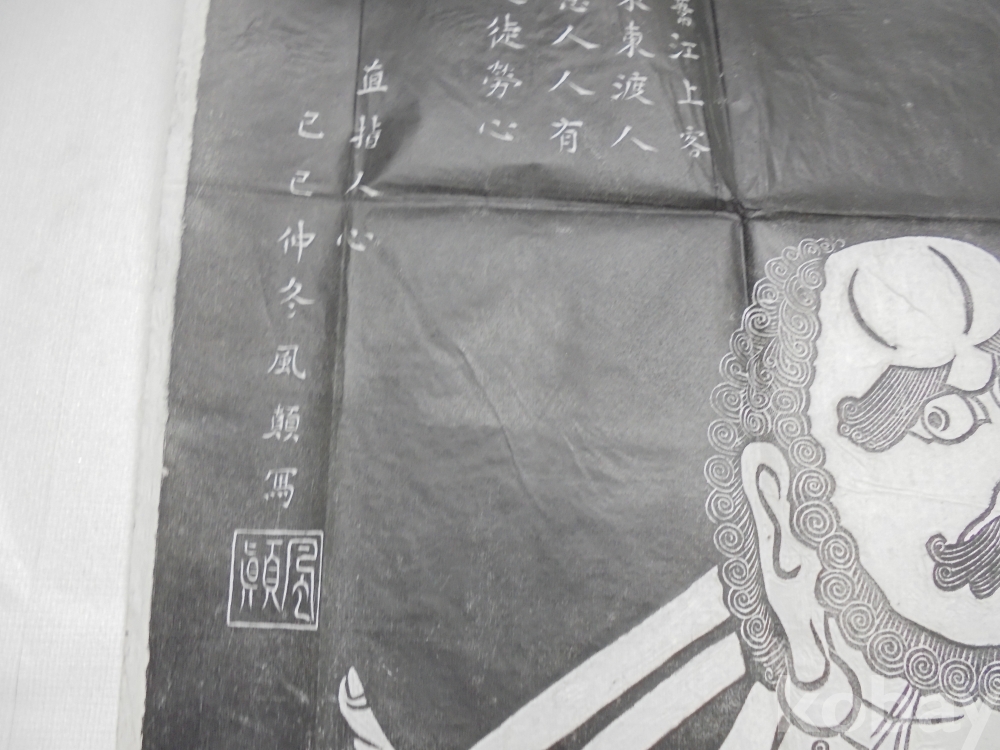 江上客
東渡人
人人有
徒勞心
直指人心
己巳仲冬風顛寫
風顛
kobay